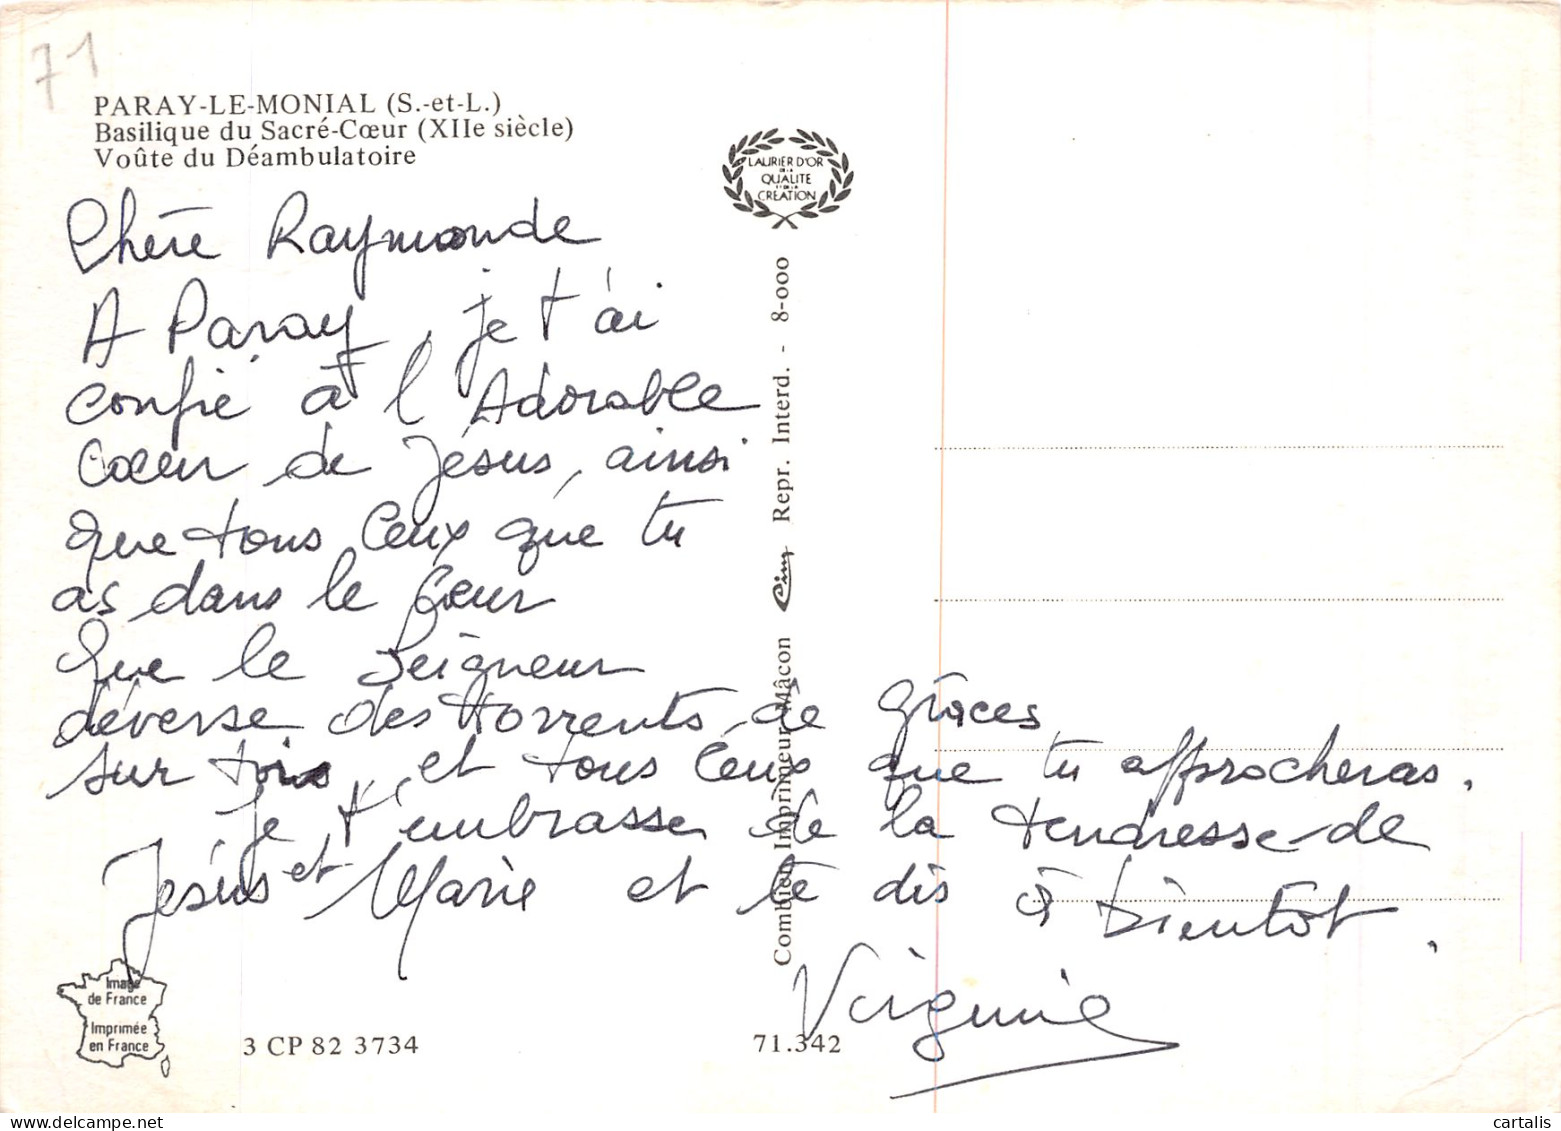 71
PARAY-LE-MONIAL (S.-et-L.)
Basilique du Sacré-Cœur (XIIe siècle)
Voûte du Déambulatoire
LAURIER D'OR
DE LA
QUALITE
ET DE LA
CREATION
Chère Raymonde
A Paray, je t'ai
confié à l'Adorable
Cœur de Jésus, ainsi
que tous ceux que tu
as dans le Cœur
Que le Seigneur
déverse des torrents de grâces
sur toi, et tous ceux que tu approcheras.
Je t'embrasse de la tendresse de
Jésus et Marie et te dis à bientôt.
Virginie
Combier Imprimeur Mâcon Cim Repr. Interd. - 8-000
Image
de France
Imprimée
en France
3 CP 82 3734
71.342
cartalis